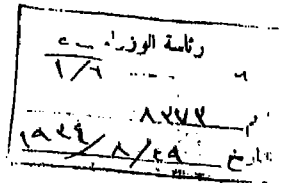 رئاسة الوزراء
١/٦
٨٢٧٣
تاريخ ١٩٢٤/٨/٢٩